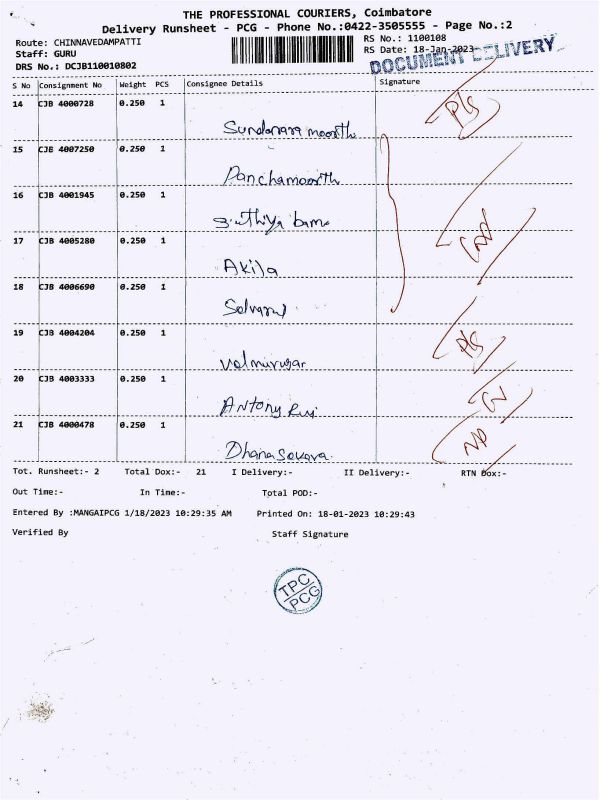 THE PROFESSIONAL COURIERS, Coimbatore
Delivery Runsheet - PCG - Phone No.:0422-3505555 - Page No.:2
Route: CHINNAVEDAMPATTI RS No.: 1100108
Staff: GURU RS Date: 18-Jan-2023
DRS No.: DCJB110010802 DOCUMENT DELIVERY
S No Consignment No Weight PCS Consignee Details Signature
14 CJB 4000728 0.250 1
15 CJB 4007250 0.250 1
Panchamoorth
16 CJB 4001945 0.250 1
17 CJB 4005280 0.250 1
Akila
18 CJB 4006690 0.250 1
19 CJB 4004204 0.250 1
20 CJB 4003333 0.250 1
Antony
21 CJB 4000478 0.250 1
Tot. Runsheet:- 2 Total Dox:- 21 I Delivery:- II Delivery:- RTN Dox:-
Out Time:- In Time:- Total POD:-
Entered By :MANGAIPCG 1/18/2023 10:29:35 AM Printed On: 18-01-2023 10:29:43
Verified By Staff Signature
TPC
PCG